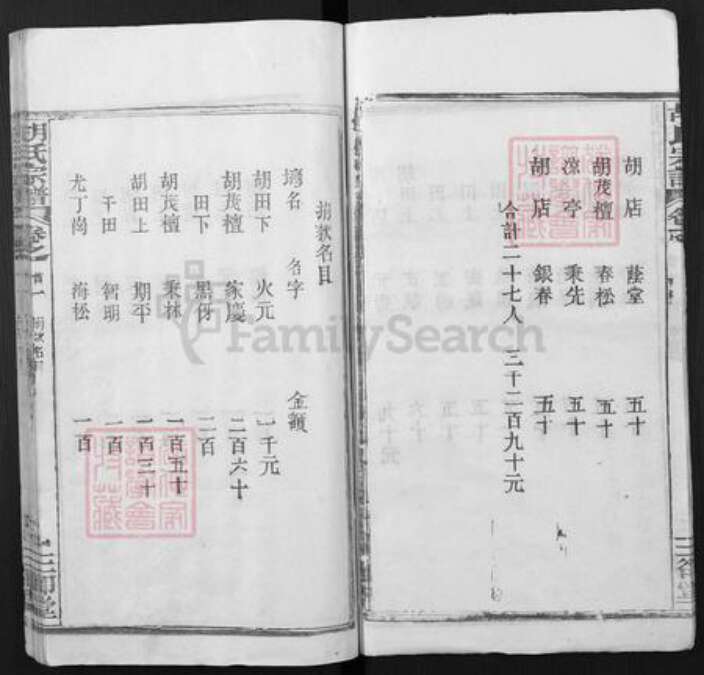 胡店 蔭堂 五十
胡茂檀 春松 五十
涼亭 秉先 五十
胡店 銀春 五十
合計二十七人 三千二百九十元
捐欵名目
塆名 名字 金額
胡田下 火元 一千元
胡茂檀 家慶 二百六十
田下 黑伢 二百
胡茂檀 秉林 一百五十
胡田上 期平 一百三十
千田 智明 一百
尤丁崗 海松 一百
胡氏宗譜 卷之首一
三卿堂
FamilySearch